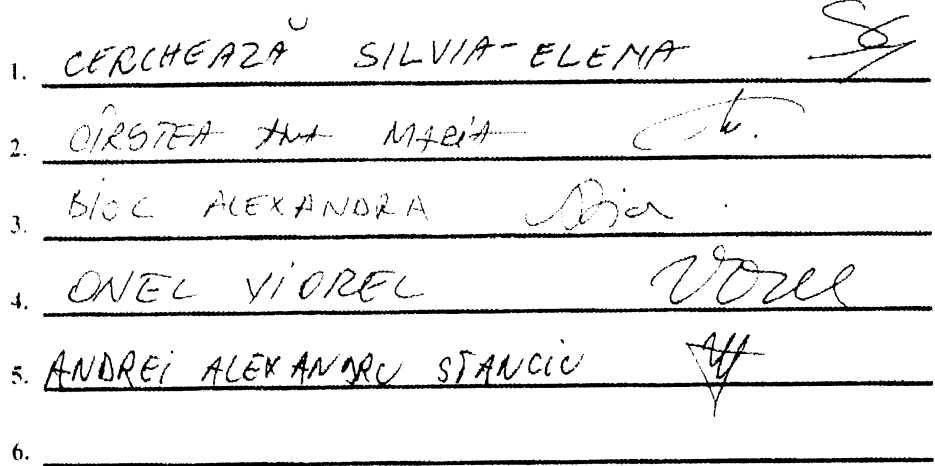 1. CERCHEAZĂ SILVIA-ELENA
2. CÎRSTEA ANA MARIA
3. BIOC ALEXANDRA
4. ONEL VIOREL
5. ANDREI ALEXANDRU STANCIU
6.